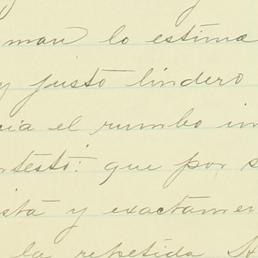 man lo estima
y justo lindero
cia el rumbo in
ntestó: que por s
ista y exactamen
la repetida H